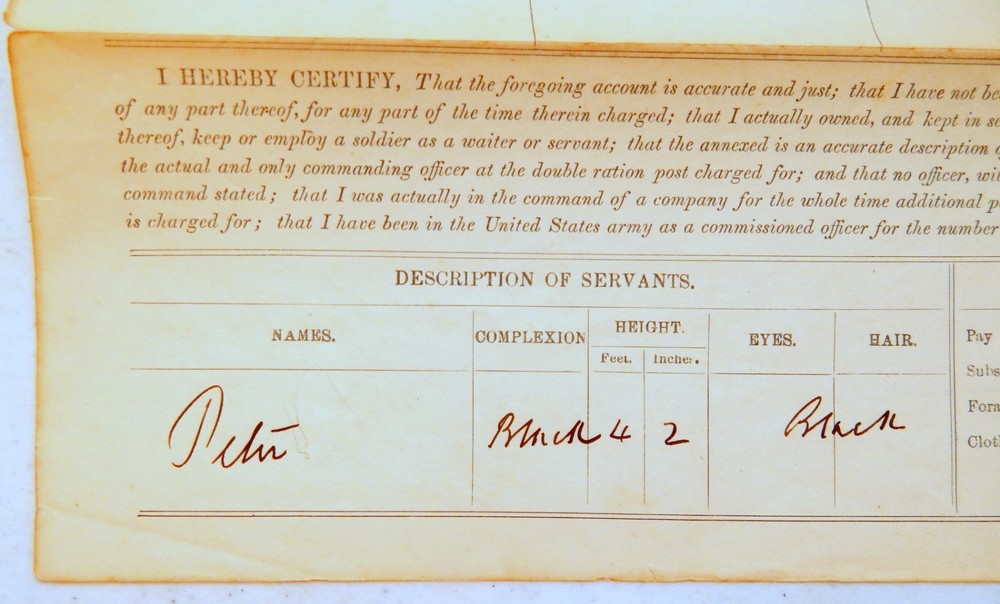 I HEREBY CERTIFY, That the foregoing account is accurate and just; that I have not be
of any part thereof, for any part of the time therein charged; that I actually owned, and kept in se
thereof, keep or employ a soldier as a waiter or servant; that the annexed is an accurate description o
the actual and only commanding officer at the double ration post charged for; and that no officer, wit
command stated; that I was actually in the command of a company for the whole time additional p
is charged for; that I have been in the United States army as a commissioned officer for the number
DESCRIPTION OF SERVANTS.
NAMES. COMPLEXION HEIGHT. EYES. HAIR.
Feet. Inches.
Peter Black 4 2 Black
Pay
Subs
Fora
Clot